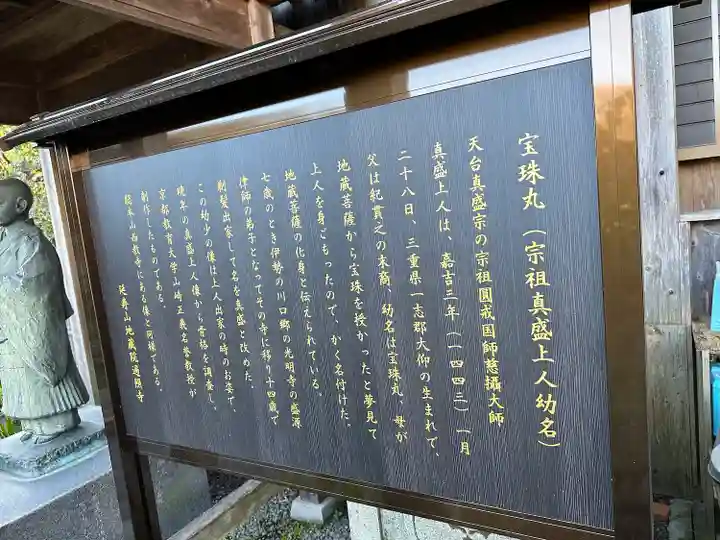 宝珠丸（宗祖真盛上人幼名）
天台真盛宗の宗祖圓戒国師慈攝大師
真盛上人は、嘉吉三年（一四四三）一月
二十八日、三重県一志郡大仰の生まれで、
父は紀貫之の末裔、幼名は宝珠丸、母が
地蔵菩薩から宝珠を授かったと夢見て
上人を身ごもったので、かく名付けた。
地蔵菩薩の化身と伝えられている。
七歳のとき伊勢の川口郷の光明寺の盛源
律師の弟子となってその寺に移り十四歳で
剃髪出家して名を真盛と改めた。
この幼少の像は上人出家の時のお姿で、
晩年の真盛上人像から骨格を調査し、
京都教育大学山崎正義名誉教授が
創作したものである。
総本山西教寺にある像と同様である。
延寿山地蔵院遍照寺